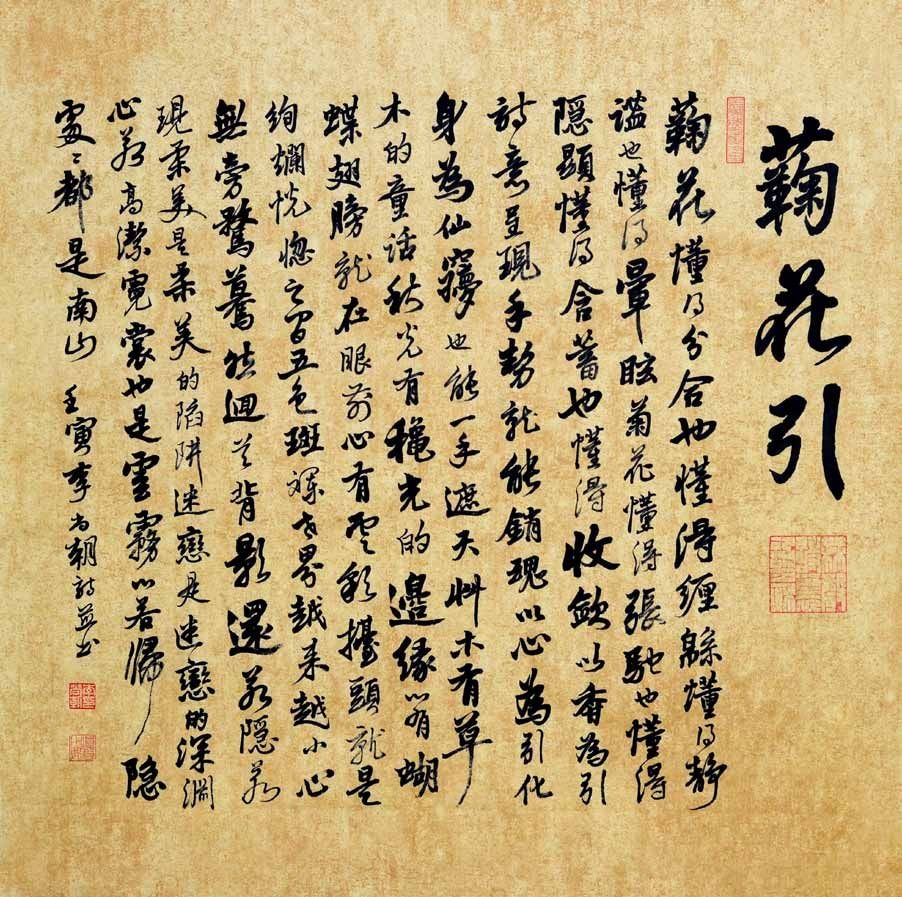 蘜花引
蘜花懂得分合也懂得缠緜懂得静
谧也懂得暈眩菊花懂得張馳也懂得
隱顯懂得含蓄也懂得收斂以香為引
詩意呈現手勢就能銷魂以心為引化
身為仙竅也能一手遮天艸木有草
木的童話秋光有穐光的邊緣心有蝴
蝶翅膀就在眼前心有雲彩擡頭就是
絢斕恍惚之间五色斑斕世界越来越小心
無旁騖驀然迴首背影還若隱若
現柔美是柔美的陷阱迷戀是迷戀的深淵
心若高潔霓裳也是雲霧心若歸隐
處處都是南山 壬寅李尚朝詩並书